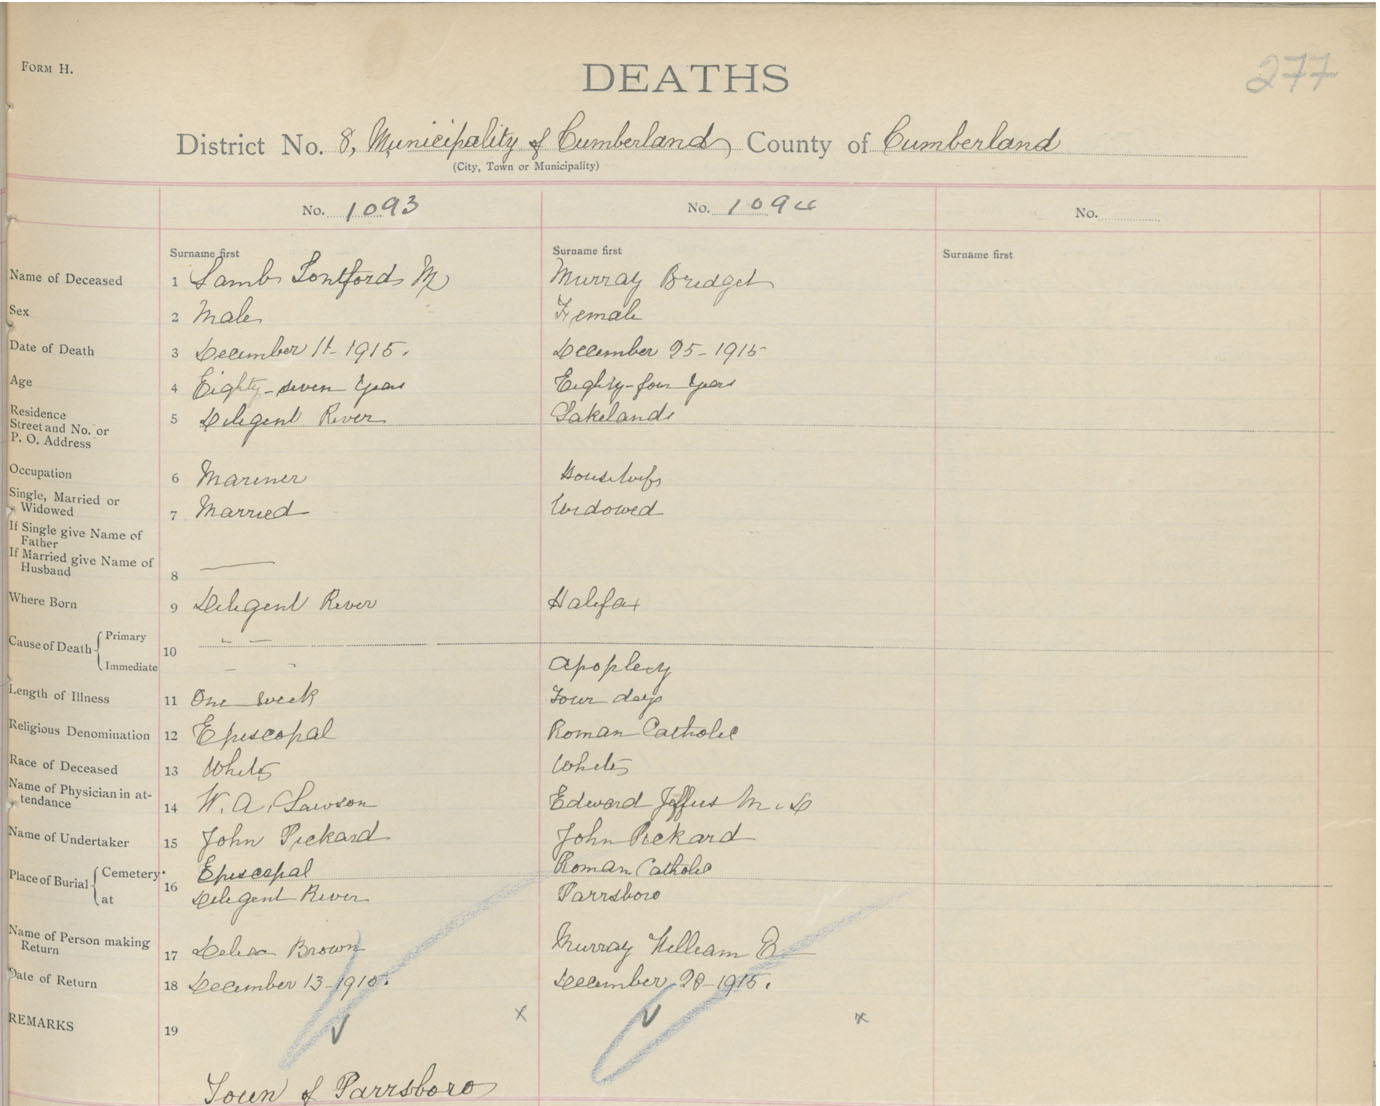 FORM H.
277
DEATHS
District No. 8, Municipality of Cumberland, County of Cumberland
(City, Town or Municipality)
No. 1093 No. 1094 No.
Surname first Surname first Surname first
Name of Deceased 1 Lamb M Murray Bridget
Sex 2 Male Female
Date of Death 3 December 11-1915. December 25-1915
Age 4 Eighty-seven years Eighty-four years
Residence
Street and No. or
P. O. Address
5 Diligent River Lakelands
Occupation 6 Mariner Housewife
Single, Married or
Widowed
7 Married Widowed
If Single give Name of
Father
If Married give Name of
Husband
8 —
Where Born 9 Diligent River Halifax
Cause of Death Primary 10 " —
Immediate — " Apoplexy
Length of Illness 11 One week Four days
Religious Denomination 12 Episcopal Roman Catholic
Race of Deceased 13 White White
Name of Physician in at-
tendance
14 W. A. Lawson Edward Jeffers M. D
Name of Undertaker 15 John Pickard John Pickard
Place of Burial Cemetery 16 Episcopal Roman Catholic
at Diligent River Parrsboro
Name of Person making
Return
17 Brown Murray William E
Date of Return 18 December 13-1915. December 28-1915.
REMARKS 19 ✓ x ✓ x
Town of Parrsboro